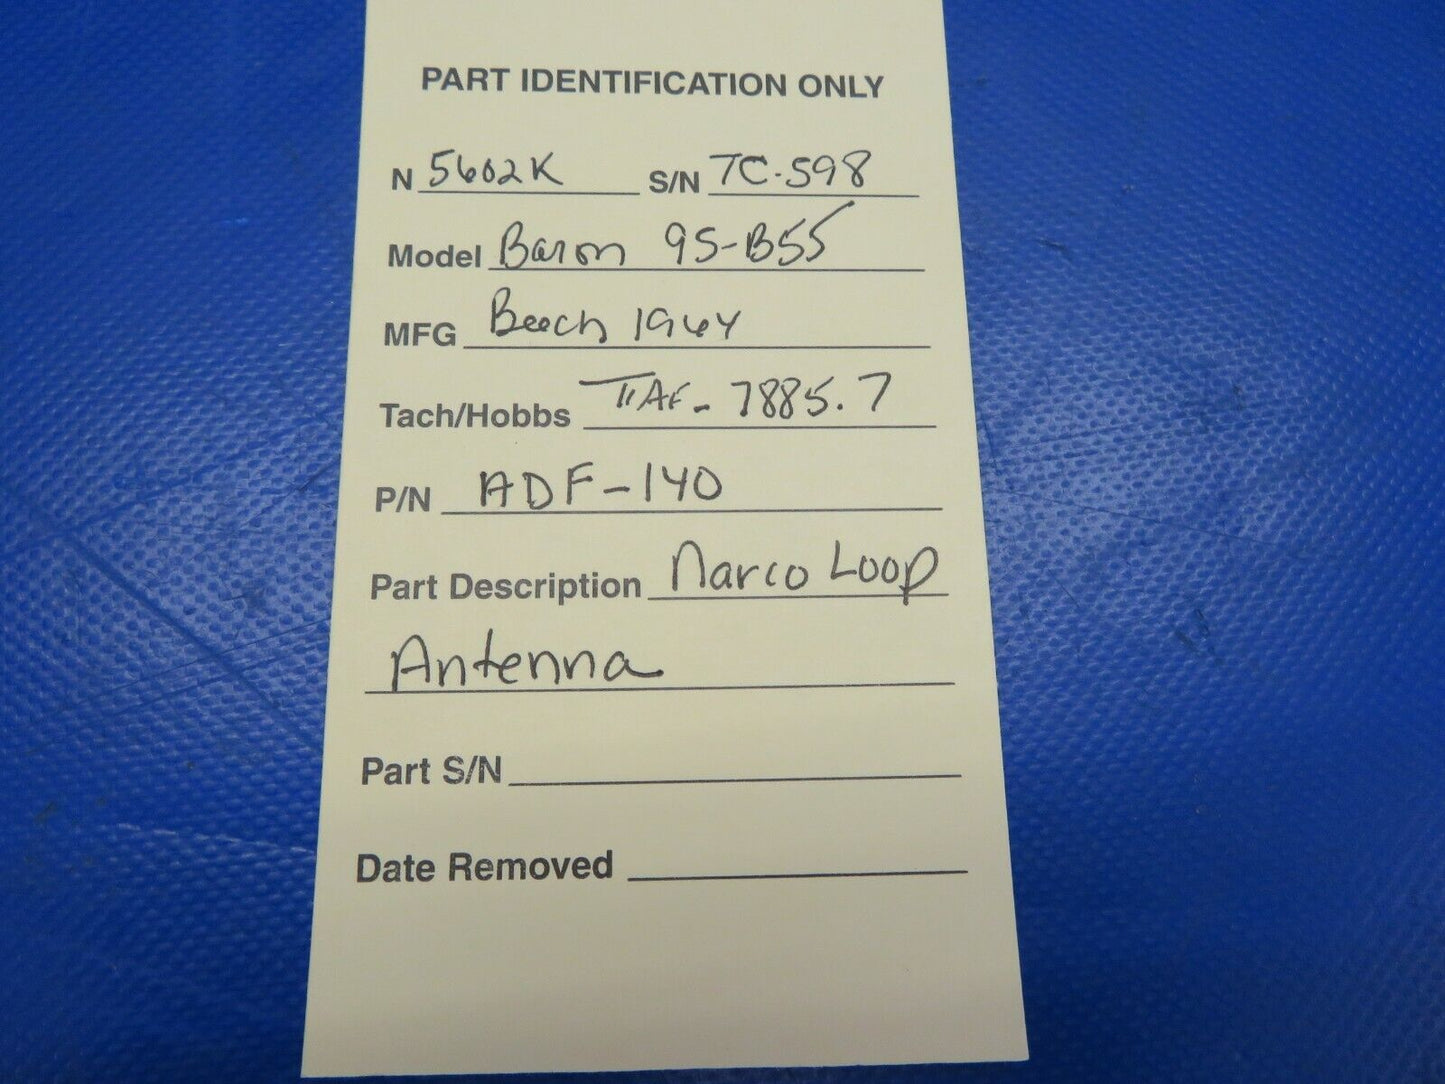 PART IDENTIFICATION ONLY
N 5602K S/N TC-598
Model Baron 95-B55
MFG Beech 1964
Tach/Hobbs TTAF- 7885.7
P/N ADF-140
Part Description Narco Loop
Antenna
Part S/N
Date Removed